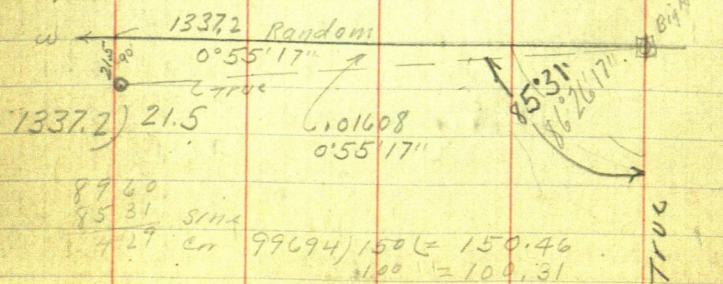 1337.2 Random
W
0°55'17"
21.5
90°
True
1337.2) 21.5
.01608
0°55'17"
85°31'
86°26'17"
89 60
85 31 sine
4 29 cor 99694) 150 (= 150.46
100 = 100.31
True